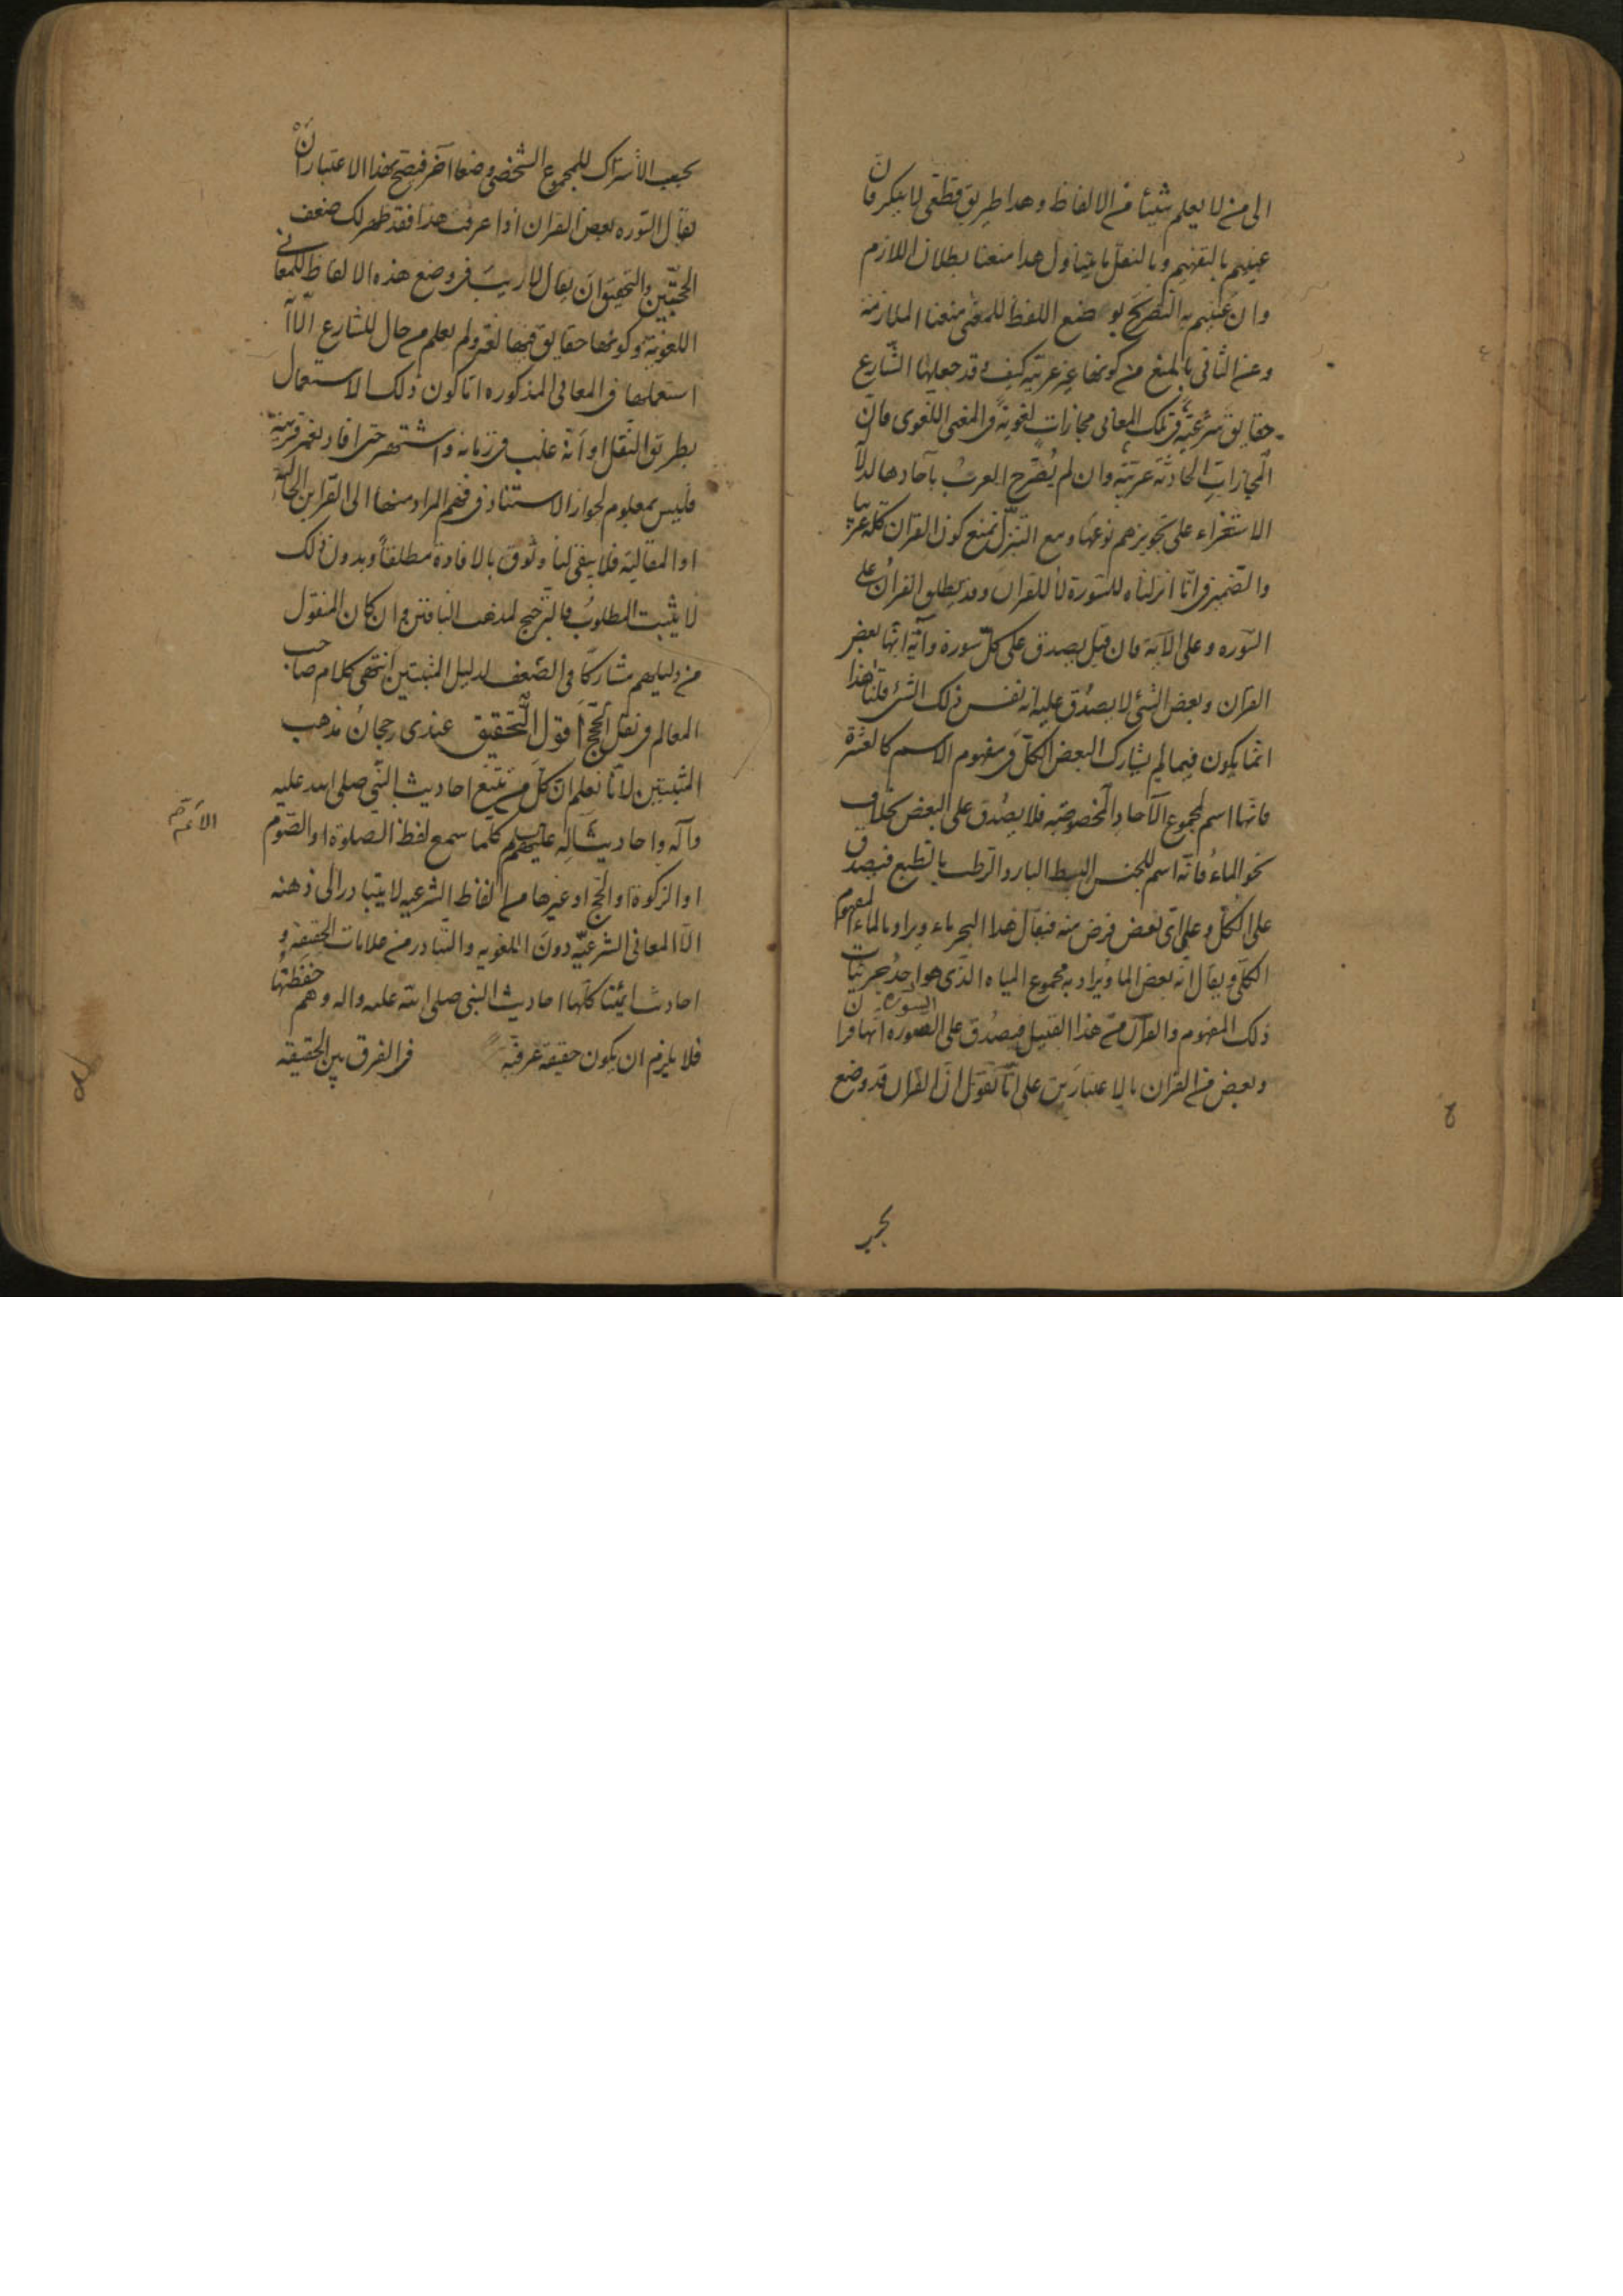 الى من لا يعلم شيئا من الالفاظ وهذا طريق قطعى لا ينكر فان
عنيتم بالتفهيم وبالنقل ما يتناول هذا منعنا بطلان اللازم
وان عنيتم به التصريح بوضع اللفظ للمعنى منعنا الملازمة
وعن الثانى بالمنع من كونها غير عربية كيف وقد جعلها الشارع
حقايق شرعية فى تلك المعانى مجازات لغوية فى المعنى اللغوى فان
المجازات الحادثة عربية وان لم يُصَرّح العرب بآحادها لدلالة
الاستقراء على تجويزهم نوعها ومع التنزّل نمنع كون القران كله عربيا
والضمير فى انّا انزلناه للسّورة لا للقران وقد يطلق القرآن على
السّوره وعلى الآية فان قيل يصدق على كلّ سورة وآية انها بعض
القرآن وبعض الشئ لا يصدُق عليه انه نفس ذلك الشئ قلنا هذا
انّما يكون فيما لم يشارك البعض الكلّ فى مفهوم الاسم كالعشرة
فانها اسم لمجموع الآحاد المخصوصة فلا يصدُق على البعض بخلاف
نحو الماء فانّه اسم للجنس البسيط البارد الرّطب بالطبع فيصدق
على الكلّ وعلى اىّ بعض فرض منه فيقال هذا البحر ماء ويراد بالماء المفهوم
الكلّى ويقال انّه بعض الماء ويراد به مجموع المياه الذى هو احدُ جزئيات
ذلك المفهوم والقرآن من هذا القبيل فيصدُق على السورة انّها قران
وبعض من القران بالاعتبارين على انّا نقول انّ القران قد وضع
بحسب الاشتراك للمجموع الشخصى وضعا آخر فيصح بهذا الاعتبار انْ
يقال السّوره بعض القران اذا عرفت هذا فقد ظهر لك ضعف
الحجّتين والتحقيق ان يقال لا ريب فى وضع هذه الالفاظ للمعانى
اللغوية وكونها حقايق فيها لغة ولم يعلم من حال للشارع الّا انّه
استعملها فى المعانى المذكوره امّا كون ذلك الاستعمال
بطريق النّقل او انّه غلب فى زمانه واشتهر حتى افاد بغير قرينة
فليس بمعلوم لجواز الاستناد فى فهم المراد منها الى القراين الحالية
او المقالية فلا يبقى لنا وثوق بالافادة مطلقاً وبدون ذلك
لا يثبت المطلوب فالترجيح لمذهب النافين وان كان المنقول
من دليلهم مشاركاً فى الضّعف لدليل المثبتين انتهى كلام صاحب
المعالم فى نقل الحجج أقول التّحقيق عندى رجحان مذهب
المثبتين لانّا نعلم انّ كلّ من تتبع احاديث النّبى صلى الله عليه
وآله واحاديث آله عليهم كلّما سمع لفظ الصلوة او الصّوم
او الزكوة او الحجّ او غيرها من الفاظ الشرعيه لا يتبادر الى ذهنه
الّا المعانى الشرعيّه دون اللغويه والتّبادر من علامات الحقيقة و
احاديث ائمّتنا كلّها احاديث النبى صلى الله عليه واله وهم حفَظَتُها
فلا يلزم ان يكون حقيقة عرفيّة فى الفرق بين الحقيقه